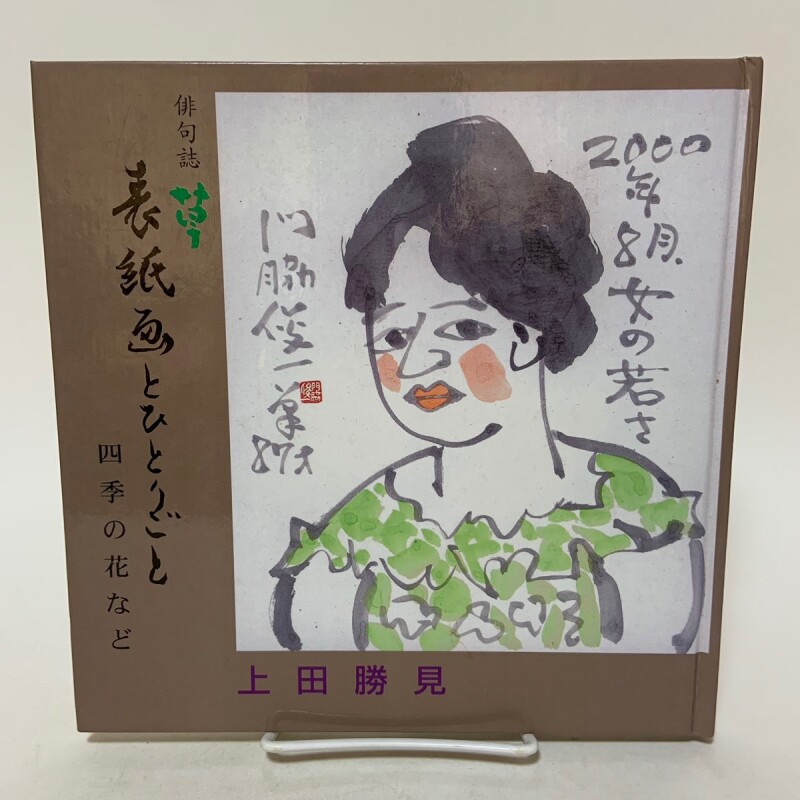 俳句誌
草
表紙画とひとりごと
四季の花など
2000
年8月、女の若さ
門脇俊一筆
87才
上田勝見